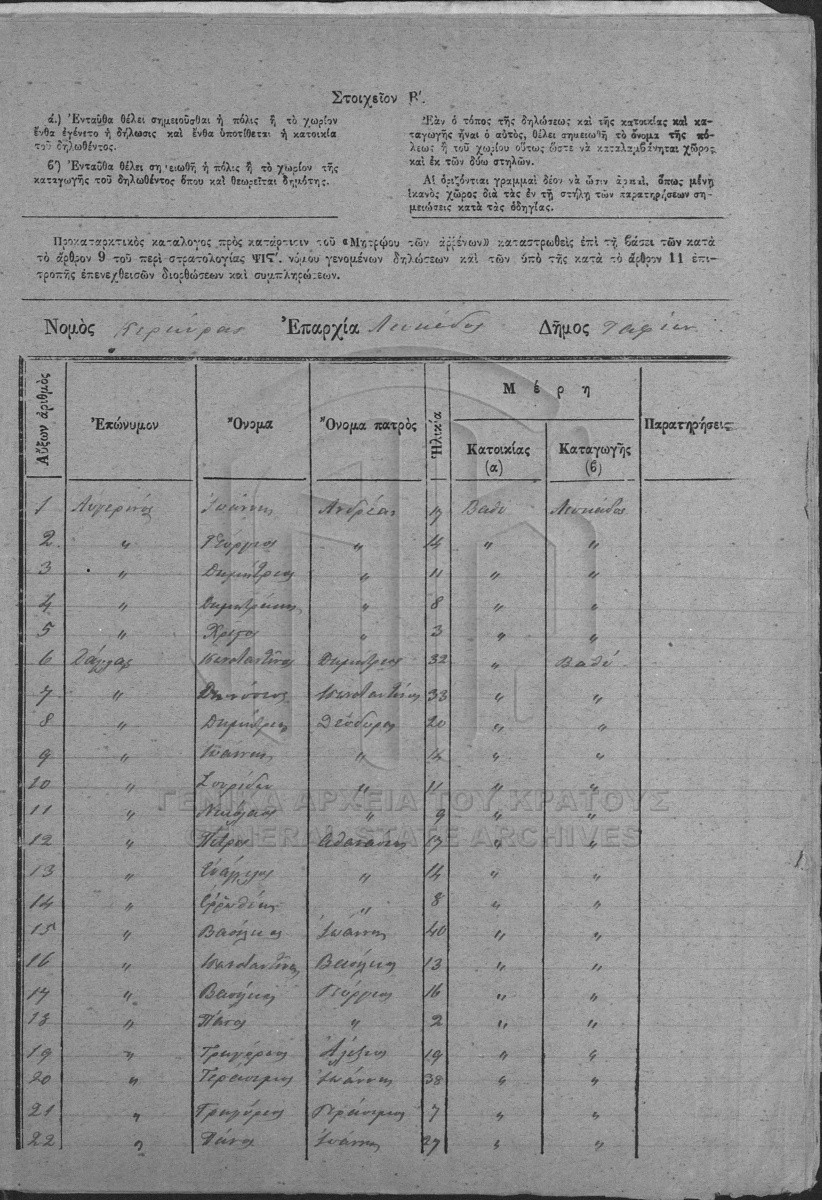 Στοιχεῖον Β′.
ά.) Ἐνταῦθα θέλει σημειοῦσθαι ἡ πόλις ἢ τὸ χωρίον
ἔνθα ἐγένετο ἡ δήλωσις καὶ ἔνθα ὑποτίθεται ἡ κατοικία
τοῦ δηλωθέντος.
ϐ′) Ἐνταῦθα θέλει ση ειωθῆ ἡ πόλις ἢ τὸ χωρίον τῆς
καταγωγῆς τοῦ δηλωθέντος ὅπου καὶ θεωρεῖται δημότης.
Ἐὰν ὁ τόπος τῆς δηλώσεως καὶ τῆς κατοικίας καὶ κα-
ταγωγῆς ἦναι ὁ αὐτὸς, θέλει σημειωθῆ τὸ ὄνομα τῆς πό-
λεως ἢ τοῦ χωρίου οὕτως ὥστε νὰ καταλαμβάνηται χῶρος
καὶ ἐκ τῶν δύω στηλῶν.
Αἱ ὁριζόντιαι γραμμαὶ δέον νὰ ὦσιν ἀραιαὶ, ὅπως μένῃ
ἱκανὸς χῶρος διὰ τὰς ἐν τῇ στήλῃ τῶν παρατηρήσεων ση-
μειώσεις κατὰ τὰς ὁδηγίας.
Προκαταρκτικὸς κατάλογος πρὸς κατάρτισιν τοῦ «Μητρώου τῶν ἀῤῥένων» καταστρωθεὶς ἐπὶ τῇ βάσει τῶν κατὰ
τὸ ἄρθρον 9 τοῦ περὶ στρατολογίας ΨΙϚ′. νόμου γενομένων δηλώσεων καὶ τῶν ὑπὸ τῆς κατὰ τὸ ἄρθρον 11 ἐπι-
τροπῆς ἐπενεχθεισῶν διορθώσεων καὶ συμπληρώσεων.
Νομὸς Κερκύρας Ἐπαρχία Λευκάδος Δῆμος Ταφίων
Αὔξων ἀριθμὸς Ἐπώνυμον Ὄνομα Ὄνομα πατρὸς Ἡλικία Μέρη Παρατηρήσεις
Κατοικίας (α) Καταγωγῆς (ϐ)
1 Αυγερινός Ἰωάννης Ἀνδρέας 17 Βαθύ Λευκάδος
2 〃 Γεώργιος 〃 14 〃 〃
3 〃 Δημήτριος 〃 11 〃 〃
4 〃 〃 8 〃 〃
5 〃 Χρῆστος 〃 3 〃 〃
6 Κωνσταντῖνος Δημήτριος 32 〃 Βαθύ
7 〃 Διονύσιος Κωνσταντῖνος 33 〃 〃
8 〃 Δημήτριος Θεόδωρος 20 〃 〃
9 〃 Ιωάννης 〃 14 〃 〃
10 〃 Σπυρίδων 〃 11 〃 〃
11 〃 Νικόλαος 〃 9 〃 〃
12 〃 Πέτρος Αθανάσιος 17 〃 〃
13 〃 Ευάγγελος 〃 14 〃 〃
14 〃 〃 8 〃 〃
15 〃 Βασίλειος Ἰωάννης 40 〃 〃
16 〃 Κωνσταντῖνος Βασίλειος 13 〃 〃
17 〃 Βασίλειος Γεώργιος 16 〃 〃
18 〃 Πάνος 〃 2 〃 〃
19 〃 Γρηγόριος Ἀλέξιος 19 〃 〃
20 〃 Γεράσιμος Ἰωάννης 38 〃 〃
21 〃 Γρηγόριος Γεράσιμος 7 〃 〃
22 〃 Πάνος Ἰωάννης 27 〃 〃
ΓΕΝΙΚΑ ΑΡΧΕΙΑ ΤΟΥ ΚΡΑΤΟΥΣ
GENERAL STATE ARCHIVES